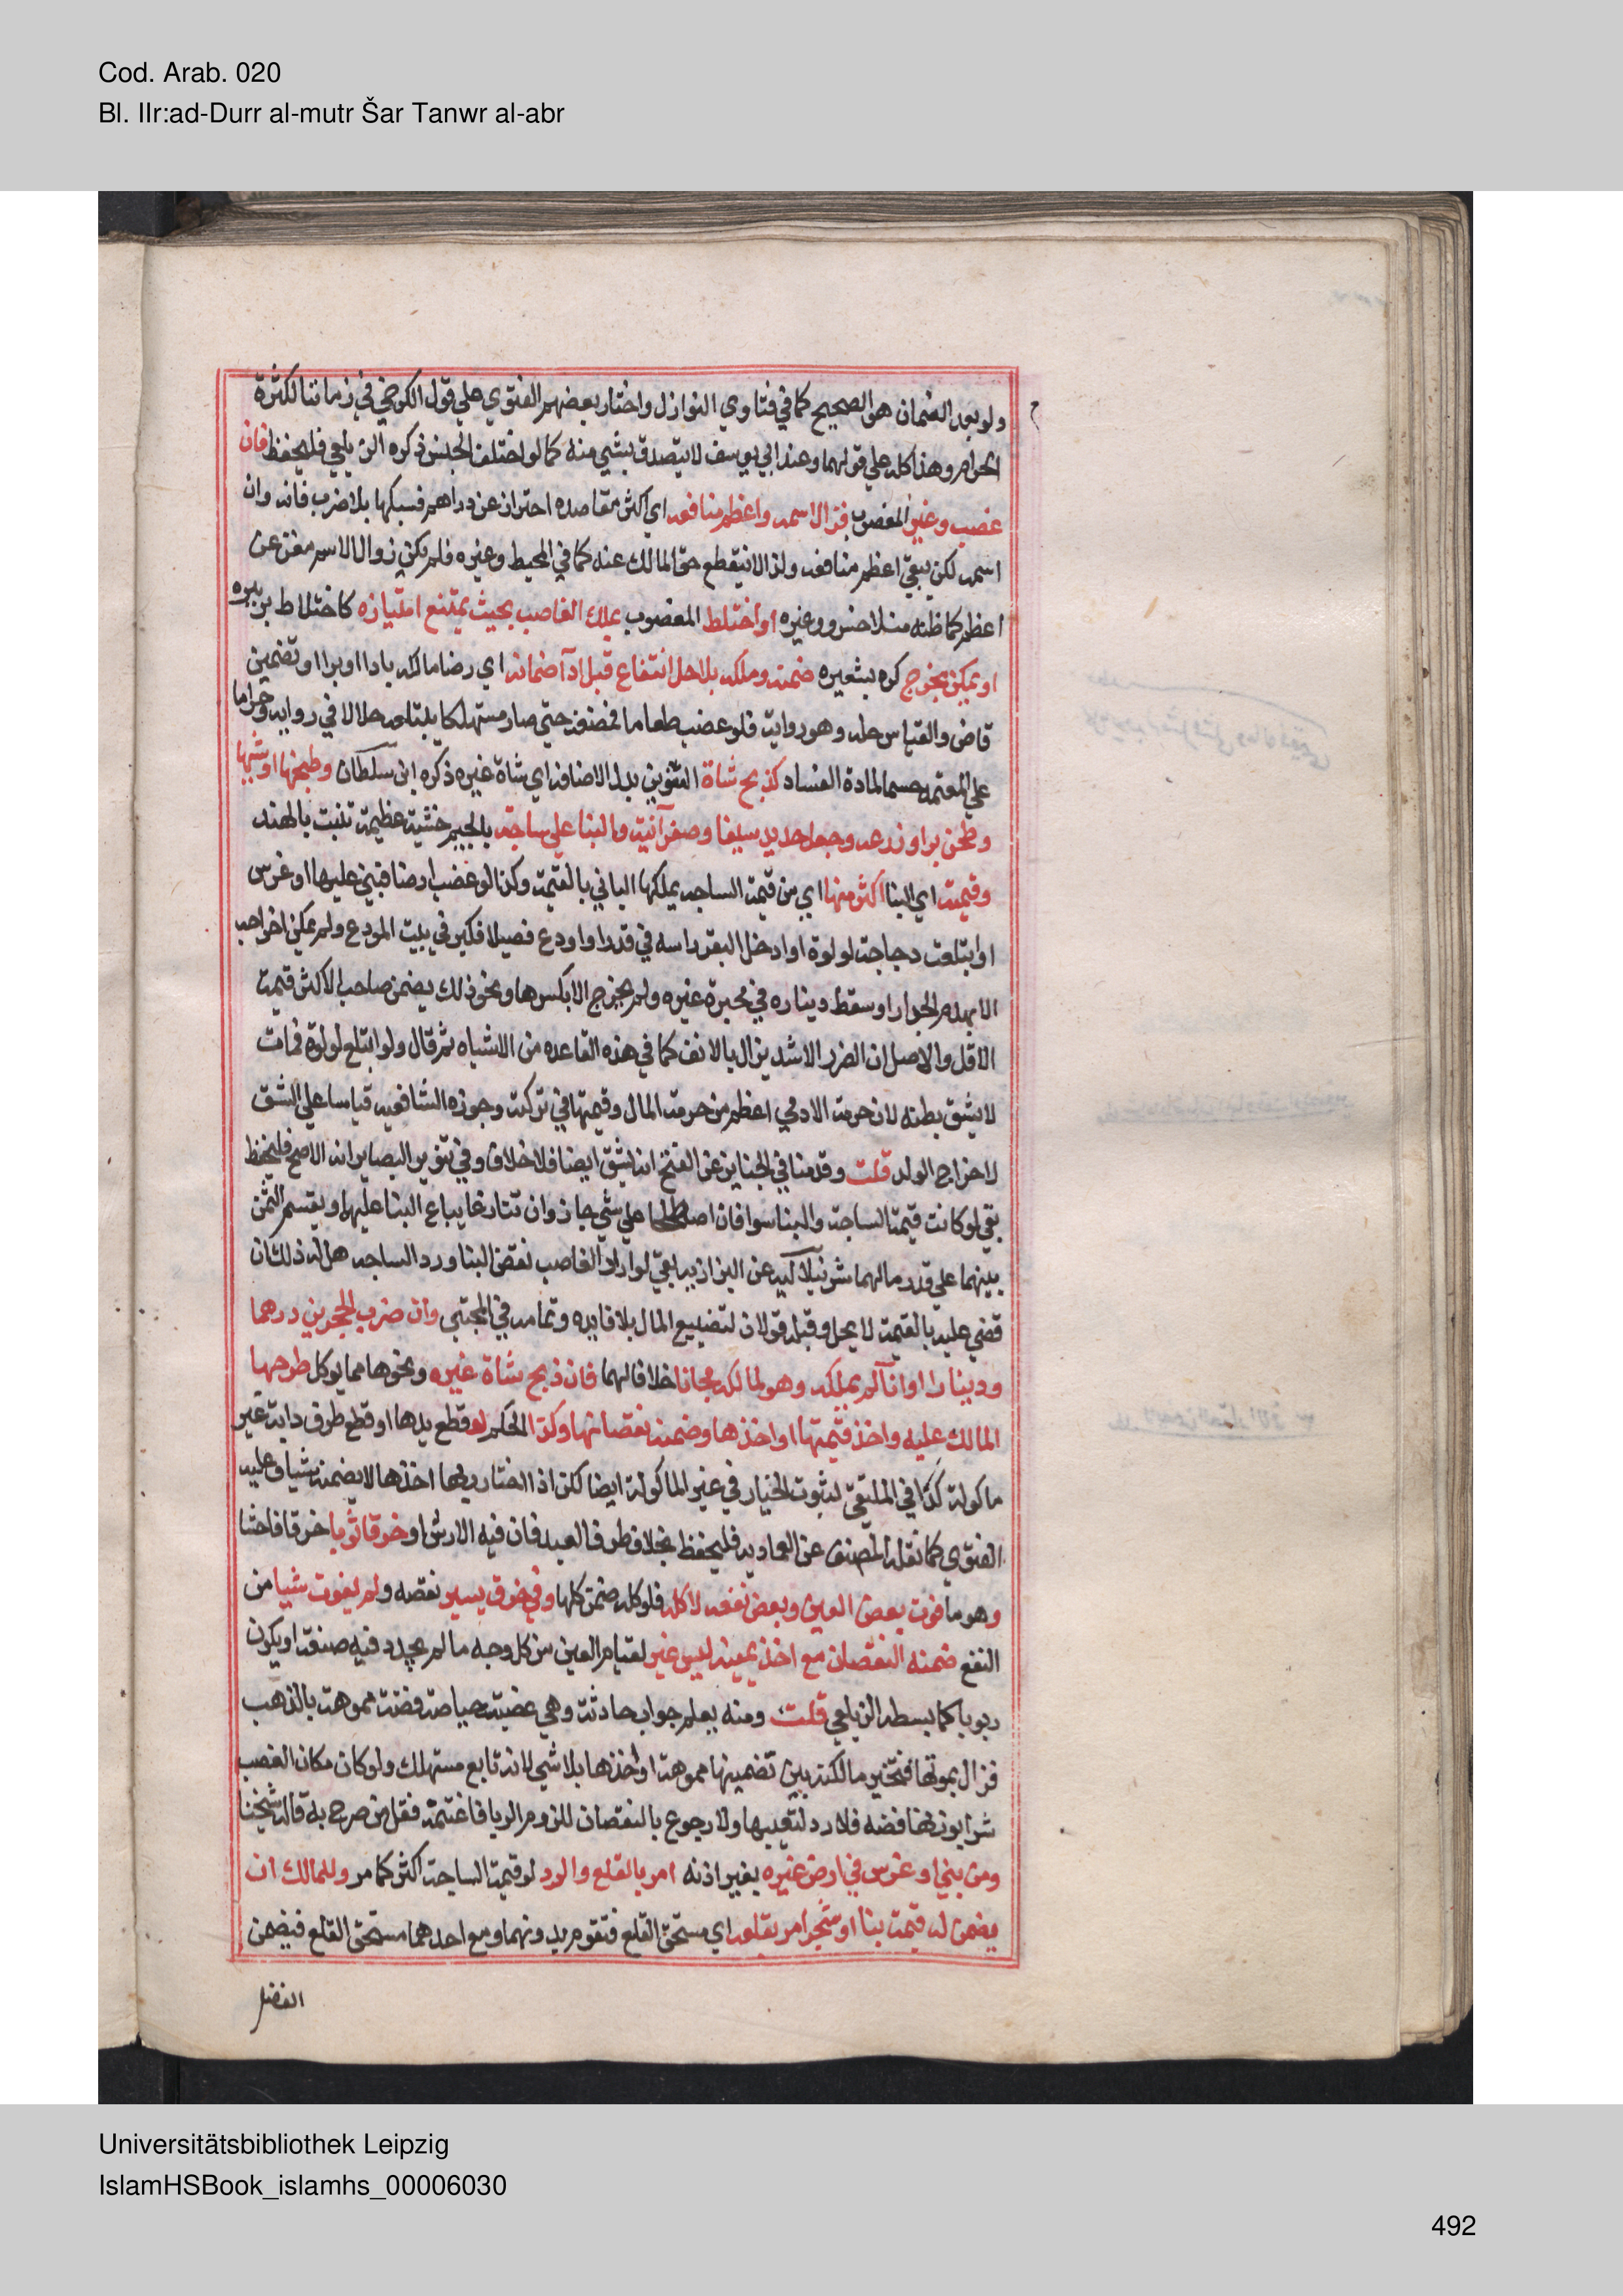 Cod. Arab. 020
Bl. IIr:ad-Durr al-mutr Šar Tanwr al-abr
ولو بعد الضمان هو الصحيح كما في فتاوي النوازل واختار بعضهم الفتوي علي قول الكرخي في زماننا لكثرة
الحرام وهذا كله علي قولهما وعند ابي يوسف لا يتصدق بشي منه كما لو اختلف الجنس ذكره الزيلعي فليحفظ فان
غصب وغير المغصوب فزال اسمه واعظم منافعه اي اكثر مقاصده احتراز عن دراهم فسبكها بلا ضرب فانه وان
اسمه لكن يبقي اعظم منافعه ولذا لا ينقطع حق المالك عنه كما في المحيط وغيره فلم يكن زوال الاسم مغن عن
اعظم كما ظنه منلا خسرو وغيره او اختلط المغصوب بملك الغاصب بحيث يمتنع امتيازه كاختلاط بر ببره
او يمكن بحرج كبره بشعيره ضمنه وملكه بلا حل انتفاع قبل ادآ ضمانه اي رضا مالكه بادا او برا او تضمين
قاض والقياس حله وهو رواية فلو غصب طعاما فمضغه حتي صار مستهلكا يبتلعه حلالا في رواية وحراما
علي المعتمد حسما لمادة الفساد كذبح شاة التنوين بدل الاضافة اي شاة غيره ذكره ابن سلطان وطبخها او شيها
وطحن بر او زرعه وجعل حديد سيفا وصفر آنية والبنا علي ساجة بالجيم خشبة عظيمة تنبت بالهند
وقيمته اي البنا اكثر منها اي من قيمة الساجه يملكها الباني بالقيمة وكذا لو غصب ارضا فبني عليها او غرس
او ابتلعت دجاجة لولوة او ادخل البقر راسه في قدر او اودع فصيلا فكبر في بيت المودع ولم يمكن اخراجه
الا بهدم الجدار او سقط ديناره في محبرة غيره ولم يخرج الا بكسرها ونحو ذلك يضمن صاحب الاكثر قيمة
الاقل والاصل ان الضرر الاشد يزال بالاخف كما في هذه القاعده من الاشباه ثم قال ولو ابتلع لولوة فمات
لا يشق بطنه لان حرمة الادمي اعظم من حرمة المال وقيمتها في تركته وجوزه الشافعيه قياسا علي الشق
لاخراج الولد قلت وقدمنا في الجناين عن الفتح انه يشق ايضا فلا خلاف وفي تنوير البصاير انه الاصح فليحفظ
بقي لو كانت قيمة الساجة والبنا سوا فان اصطلحا علي شي جاز وان تنازعا يباع البنا عليهما ويقسم الثمن
بينهما علي قدر مالهما شرنبلاليه عن البزازيه بقي لو اراد الغاصب نقض البنا ورد الساجه هل له ذلك ان
قضي عليه بالقيمة لا يحل وقبله قولان لتضييع المال بلا فايده وتمامه في المجتبي وان ضرب الحجرين درهما
ودينارا او اناآ لم يملكه وهو لمالكه مجانا خلافا لهما فان ذبح شاة غيره ونحوها مما يوكل طرحها
المالك عليه واخذ قيمتها او اخذها وضمنه نقصانها وكذا الحكم لو قطع يدها او قطع طرف دابة غير
ماكولة كذا في الملتقي لثبوت الخيار في غير الماكولة ايضا لكن اذا اختار ربها اخذها لا يضمنه شيا وعليه
الفتوي كما نقله المصنف عن العماديه فليحفظ بخلاف طرف العبد فان فيه الارش او خرق ثوبا خرقا فاحشا
وهو ما فوت بعض العين وبعض نفعه لا كله فلو كله ضمن كلها وفي خرق يسير نقصه ولم يفوت شيا من
النفع ضمنه النقصان مع اخذ عينه ليس غير لقيام العين من كل وجه ما لم يجدد فيه صنعة او يكون
ربويا كما بسطه الزيلعي قلت ومنه يعلم جواب حادثة وهي غصبت حياصة فضة مموهة بالذهب
فزال تمويهها فتخير مالكتها بين تضمينها مموهة او اخذها بلا شي لانه تابع مستهلك ولو كان مكان الغصب
شرا بوزنها فضه فلا رد لتعيبها ولا رجوع بالنقصان للزوم الربا فاغتنمه فقل من صرح به قاله شيخنا
ومن بني او غرس في ارض غيره بغير اذنه امر بالقلع والرد لو قيمة الساحة اكثر كما مر وللمالك ان
يضمن له قيمة بنا او شجر امر بقلعه اي مستحق القلع فتقوم بدونهما ومع احدهما مستحق القلع فيضمن
الفضل
Universitätsbibliothek Leipzig
IslamHSBook_islamhs_00006030
492